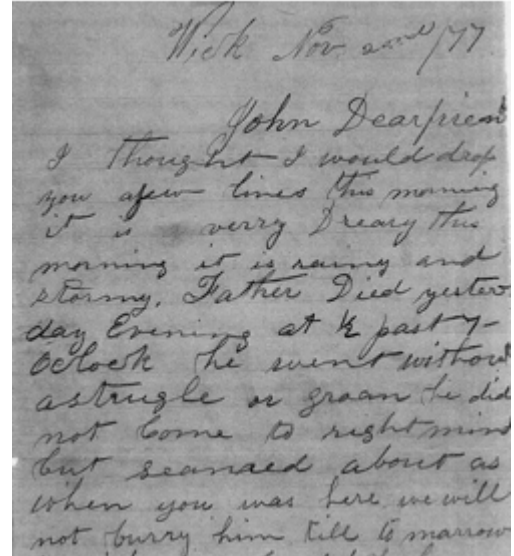 Wick Nov 2nd /77
John Dear friend
I thought I would drop
you afew lines this morning
it is a verry Dreary this
morning it is rainy and
stormy. Father Died yester
day Evening at ½ past 7-
Oclock he went without
astrugle or groan he did
not Come to right mind
but seamed about as
when you was here we will
not burry him till to marrow